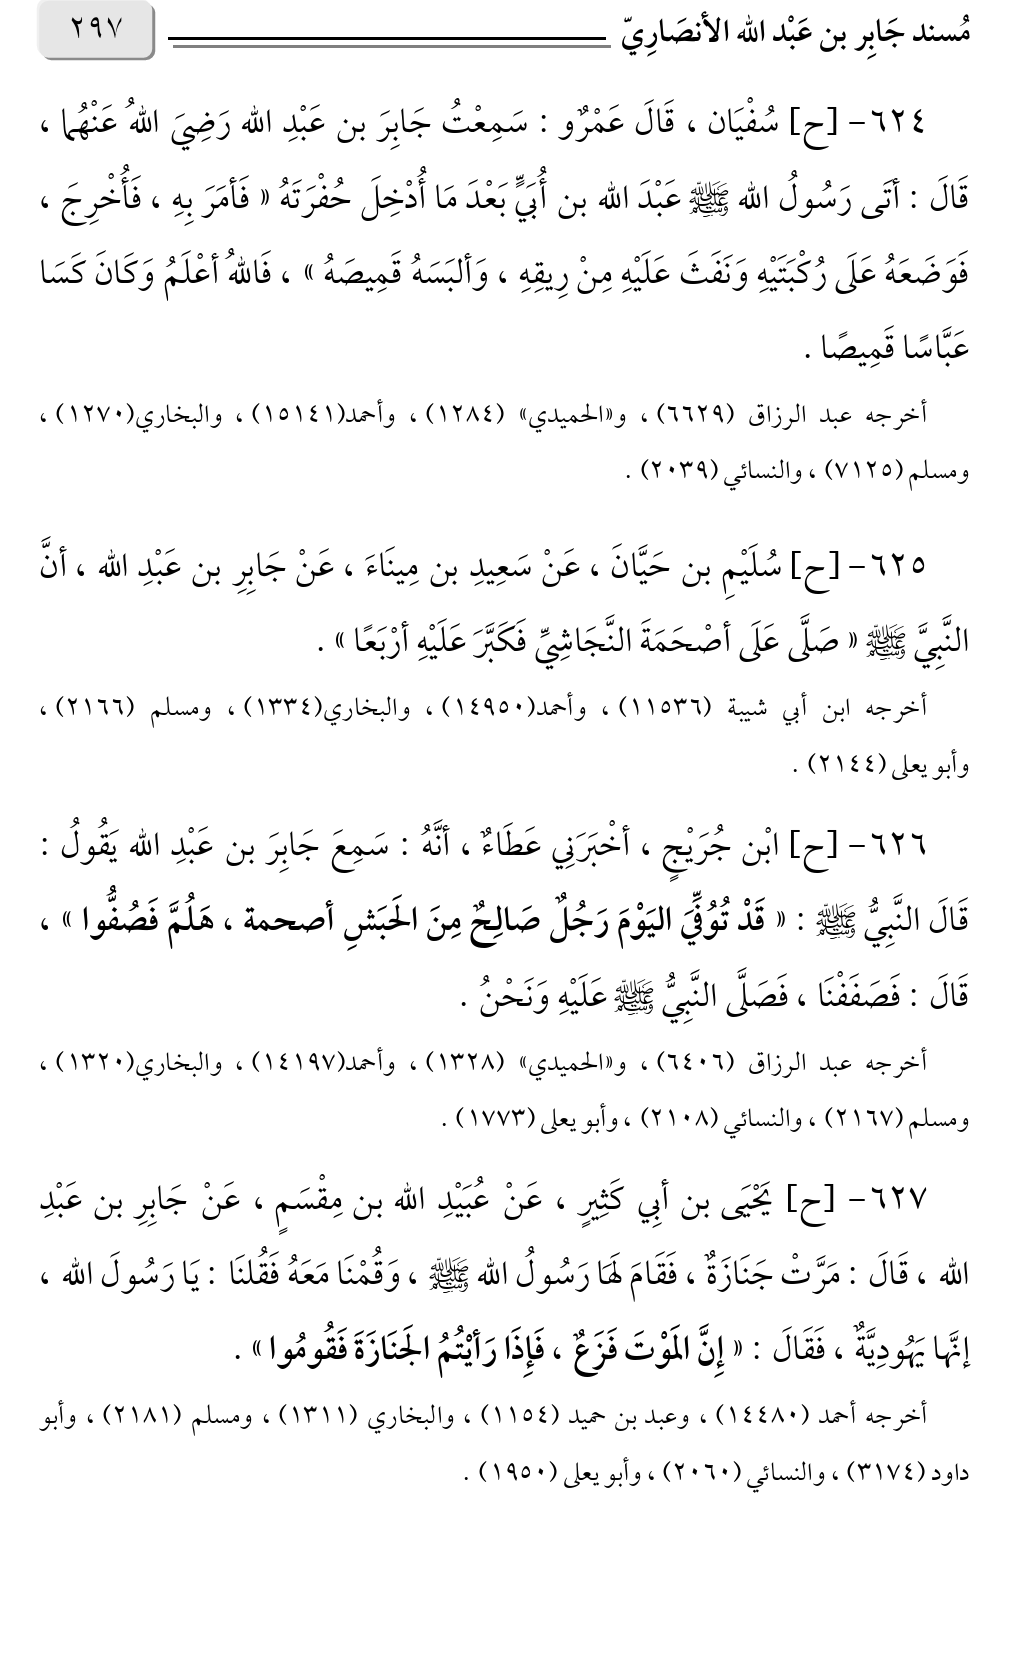 مُسند جَابِر بن عَبْد الله الأنصَارِيّ ٢٩٧
٦٢٤- [ح] سُفْيَان ، قَالَ عَمْرٌو : سَمِعْتُ جَابِرَ بن عَبْدِ الله رَضِيَ اللهُ عَنْهُما ،
قَالَ : أتَى رَسُولُ الله ﷺ عَبْدَ الله بن أُبَيٍّ بَعْدَ مَا أُدْخِلَ حُفْرَتَهُ « فَأمَرَ بِهِ ، فَأُخْرِجَ ،
فَوَضَعَهُ عَلَى رُكْبَتَيْهِ وَنَفَثَ عَلَيْهِ مِنْ رِيقِهِ ، وَألبَسَهُ قَمِيصَهُ » ، فَاللهُ أعْلَمُ وَكَانَ كَسَا
عَبَّاسًا قَمِيصًا .
أخرجه عبد الرزاق (٦٦٢٩) ، و«الحميدي» (١٢٨٤) ، وأحمد(١٥١٤١) ، والبخاري(١٢٧٠) ،
ومسلم (٧١٢٥) ، والنسائي (٢٠٣٩) .
٦٢٥- [ح] سُلَيْمِ بن حَيَّانَ ، عَنْ سَعِيدِ بن مِينَاءَ ، عَنْ جَابِرِ بن عَبْدِ الله ، أنَّ
النَّبِيَّ ﷺ « صَلَّى عَلَى أصْحَمَةَ النَّجَاشِيِّ فَكَبَّرَ عَلَيْهِ أرْبَعًا » .
أخرجه ابن أبي شيبة (١١٥٣٦) ، وأحمد(١٤٩٥٠) ، والبخاري(١٣٣٤) ، ومسلم (٢١٦٦) ،
وأبو يعلى (٢١٤٤) .
٦٢٦- [ح] ابْن جُرَيْجٍ ، أخْبَرَنِي عَطَاءٌ ، أنَّهُ : سَمِعَ جَابِرَ بن عَبْدِ الله يَقُولُ :
قَالَ النَّبِيُّ ﷺ : « قَدْ تُوُفِّيَ اليَوْمَ رَجُلٌ صَالِحٌ مِنَ الحَبَشِ أصحمة ، هَلُمَّ فَصُفُّوا » ،
قَالَ : فَصَفَفْنَا ، فَصَلَّى النَّبِيُّ ﷺ عَلَيْهِ وَنَحْنُ .
أخرجه عبد الرزاق (٦٤٠٦) ، و«الحميدي» (١٣٢٨) ، وأحمد(١٤١٩٧) ، والبخاري(١٣٢٠) ،
ومسلم (٢١٦٧) ، والنسائي (٢١٠٨) ، وأبو يعلى (١٧٧٣) .
٦٢٧- [ح] يَحْيَى بن أبِي كَثِيرٍ ، عَنْ عُبَيْدِ الله بن مِقْسَمٍ ، عَنْ جَابِرِ بن عَبْدِ
الله ، قَالَ : مَرَّتْ جَنَازَةٌ ، فَقَامَ لهَا رَسُولُ الله ﷺ ، وَقُمْنَا مَعَهُ فَقُلنَا : يَا رَسُولَ الله ،
إنَّها يَهُودِيَّةٌ ، فَقَالَ : « إِنَّ المَوْتَ فَزَعٌ ، فَإِذَا رَأيْتُمُ الجَنَازَةَ فَقُومُوا » .
أخرجه أحمد (١٤٤٨٠) ، وعبد بن حميد (١١٥٤) ، والبخاري (١٣١١) ، ومسلم (٢١٨١) ، وأبو
داود (٣١٧٤) ، والنسائي (٢٠٦٠) ، وأبو يعلى (١٩٥٠) .